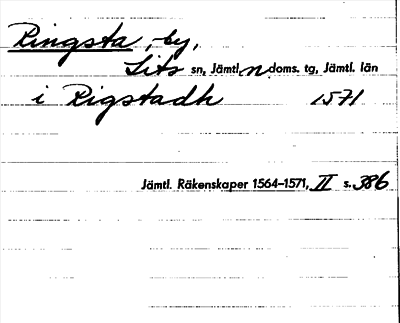 Ringsta, by,
Lits sn, Jämtl. n doms. tg, Jämtl. län
i Rigstadh 1571
Jämtl. Räkenskaper 1564-1571, II s. 386